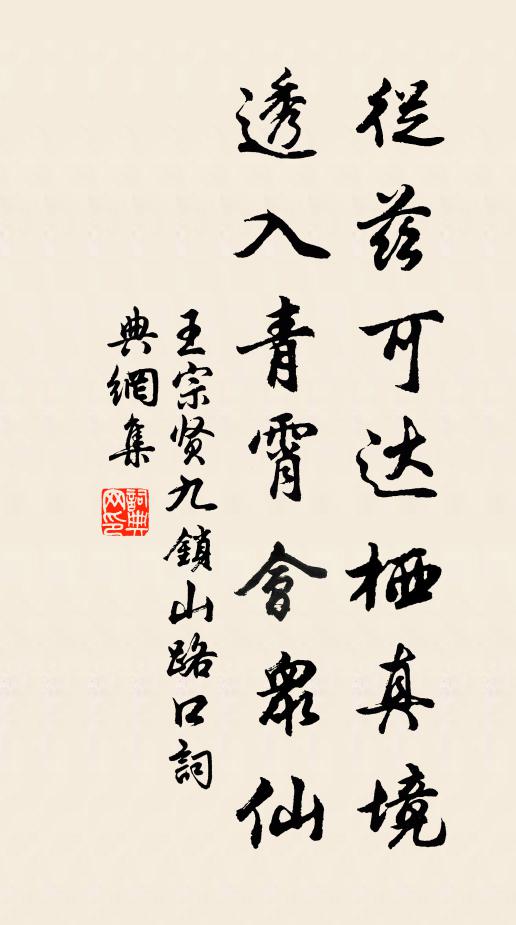 從茲可达栖真境
透入青霄會眾仙
王宗贤九鎖山路口詞
典網集
詞典网印